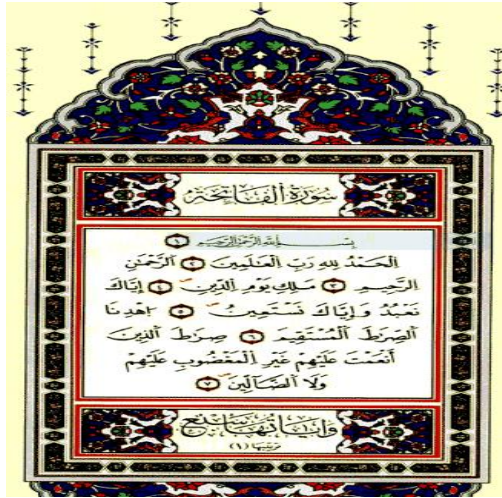 سورة الفاتحة
بسم الله الرحمن الرحيم ١
الحمد لله رب العالمين ٢ الرحمن
الرحيم ٣ ملك يوم الدين ٤ إياك
نعبد وإياك نستعين ٥ اهدنا
الصرط المستقيم ٦ صرط الذين
أنعمت عليهم غير المغضوب عليهم
ولا الضالين ٧
وآياتها سبع
ترتيبها (١)